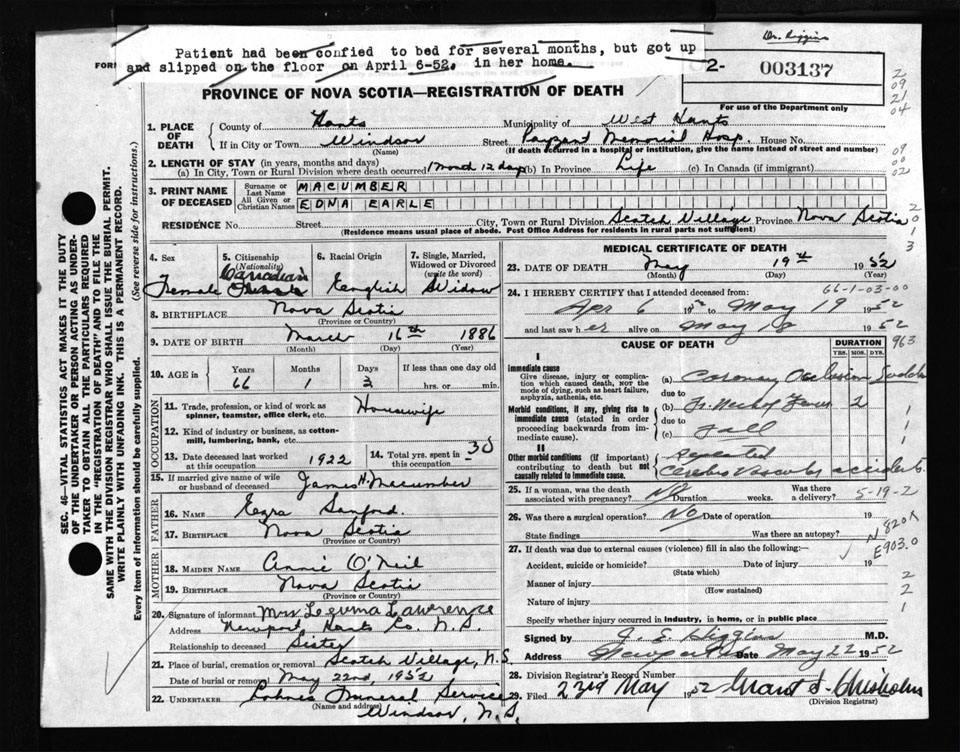 Dr. Higgins
Patient had been confied to bed for several months, but got up
and slipped on the floor on April 6-52. in her home.
FOR
2- 003137
PROVINCE OF NOVA SCOTIA—REGISTRATION OF DEATH
For use of the Department only
2
09
21
04
09
00
02
2
0
1
3
1. PLACE OF DEATH
County of Hants Municipality of West Hants
If in City or Town Windsor Street Payzant Memorial Hosp. House No.
(Name) (If death occurred in a hospital or institution, give the name instead of street and number)
2. LENGTH OF STAY (in years, months and days)
(a) In City, Town or Rural Division where death occurred 1 mond 12 days (b) In Province Life (c) In Canada (if immigrant)
3. PRINT NAME OF DECEASED
Surname or Last Name MACUMBER
All Given or Christian Names EDNA EARLE
RESIDENCE No. Street City, Town or Rural Division Scotch Village Province Nova Scotia
(Residence means usual place of abode. Post Office Address for residents in rural parts not sufficient)
SEC. 46—VITAL STATISTICS ACT MAKES IT THE DUTY
OF THE UNDERTAKER OR PERSON ACTING AS UNDER-
TAKER TO OBTAIN ALL THE PARTICULARS REQUIRED
IN THE "REGISTRATION OF DEATH" AND TO FILE THE
SAME WITH THE DIVISION REGISTRAR WHO SHALL ISSUE THE BURIAL PERMIT.
WRITE PLAINLY WITH UNFADING INK. THIS IS A PERMANENT RECORD.
Every item of information should be carefully supplied. (See reverse side for instructions.)
4. Sex Female
5. Citizenship (Nationality) Canadian
6. Racial Origin English
7. Single, Married, Widowed or Divorced (write the word) Widow
8. BIRTHPLACE Nova Scotia
(Province or Country)
9. DATE OF BIRTH March 16th 1886
(Month) (Day) (Year)
10. AGE in Years Months Days If less than one day old
66 1 3 hrs. or min.
OCCUPATION
11. Trade, profession, or kind of work as spinner, teamster, office clerk, etc. Housewife
12. Kind of industry or business, as cotton-mill, lumbering, bank, etc.
13. Date deceased last worked at this occupation 1922
14. Total yrs. spent in this occupation 30
15. If married give name of wife or husband of deceased James H. Macumber
FATHER
16. NAME Ezra Sanford
17. BIRTHPLACE Nova Scotia
(Province or Country)
MOTHER
18. MAIDEN NAME Annie O'Neil
19. BIRTHPLACE Nova Scotia
(Province or Country)
20. Signature of informant Mrs Lawrence
Address Newport Hants Co. N.S.
Relationship to deceased Sister
21. Place of burial, cremation or removal Scotch Village, N.S
Date of burial or removal May 22nd, 1952
22. UNDERTAKER Funeral Service
(Name and address)
Windsor, N.S.
MEDICAL CERTIFICATE OF DEATH
23. DATE OF DEATH May 19th 1952
(Month) (Day) (Year)
66-1-03-00
24. I HEREBY CERTIFY that I attended deceased from:
Apr 6 1952 to May 19 1952
and last saw her alive on May 1952
963
CAUSE OF DEATH DURATION
YRS. MOS. DYS.
I
Immediate cause
Give disease, injury or complication which caused death, NOT the mode of dying, such as heart failure, asphyxia, asthenia, etc.
(a) Coronary Occlusion Sudden
due to
Morbid conditions, if any, giving rise to immediate cause (stated in order proceeding backwards from immediate cause).
(b) Fr. Neck of Femur 2
due to
(c) Fall
1
1
II
Other morbid conditions (if important) contributing to death but not causally related to immediate cause.
repeated
Cerebro Vascular accidents.
25. If a woman, was the death associated with pregnancy? No Duration weeks. Was there a delivery? 5-19-2
26. Was there a surgical operation? No Date of operation 19
State findings Was there an autopsy?
N 820X
E903.0
27. If death was due to external causes (violence) fill in also the following:—
Accident, suicide or homicide? Date of injury 19
(State which)
Manner of injury
(How sustained)
Nature of injury
Specify whether injury occurred in industry, in home, or in public place
2
2
1
Signed by J. E. Higgins M.D.
Address Newport Date May 22 1952
28. Division Registrar's Record Number
29. Filed 23rd May 1952 Grant S. Chisholm
(Division Registrar)